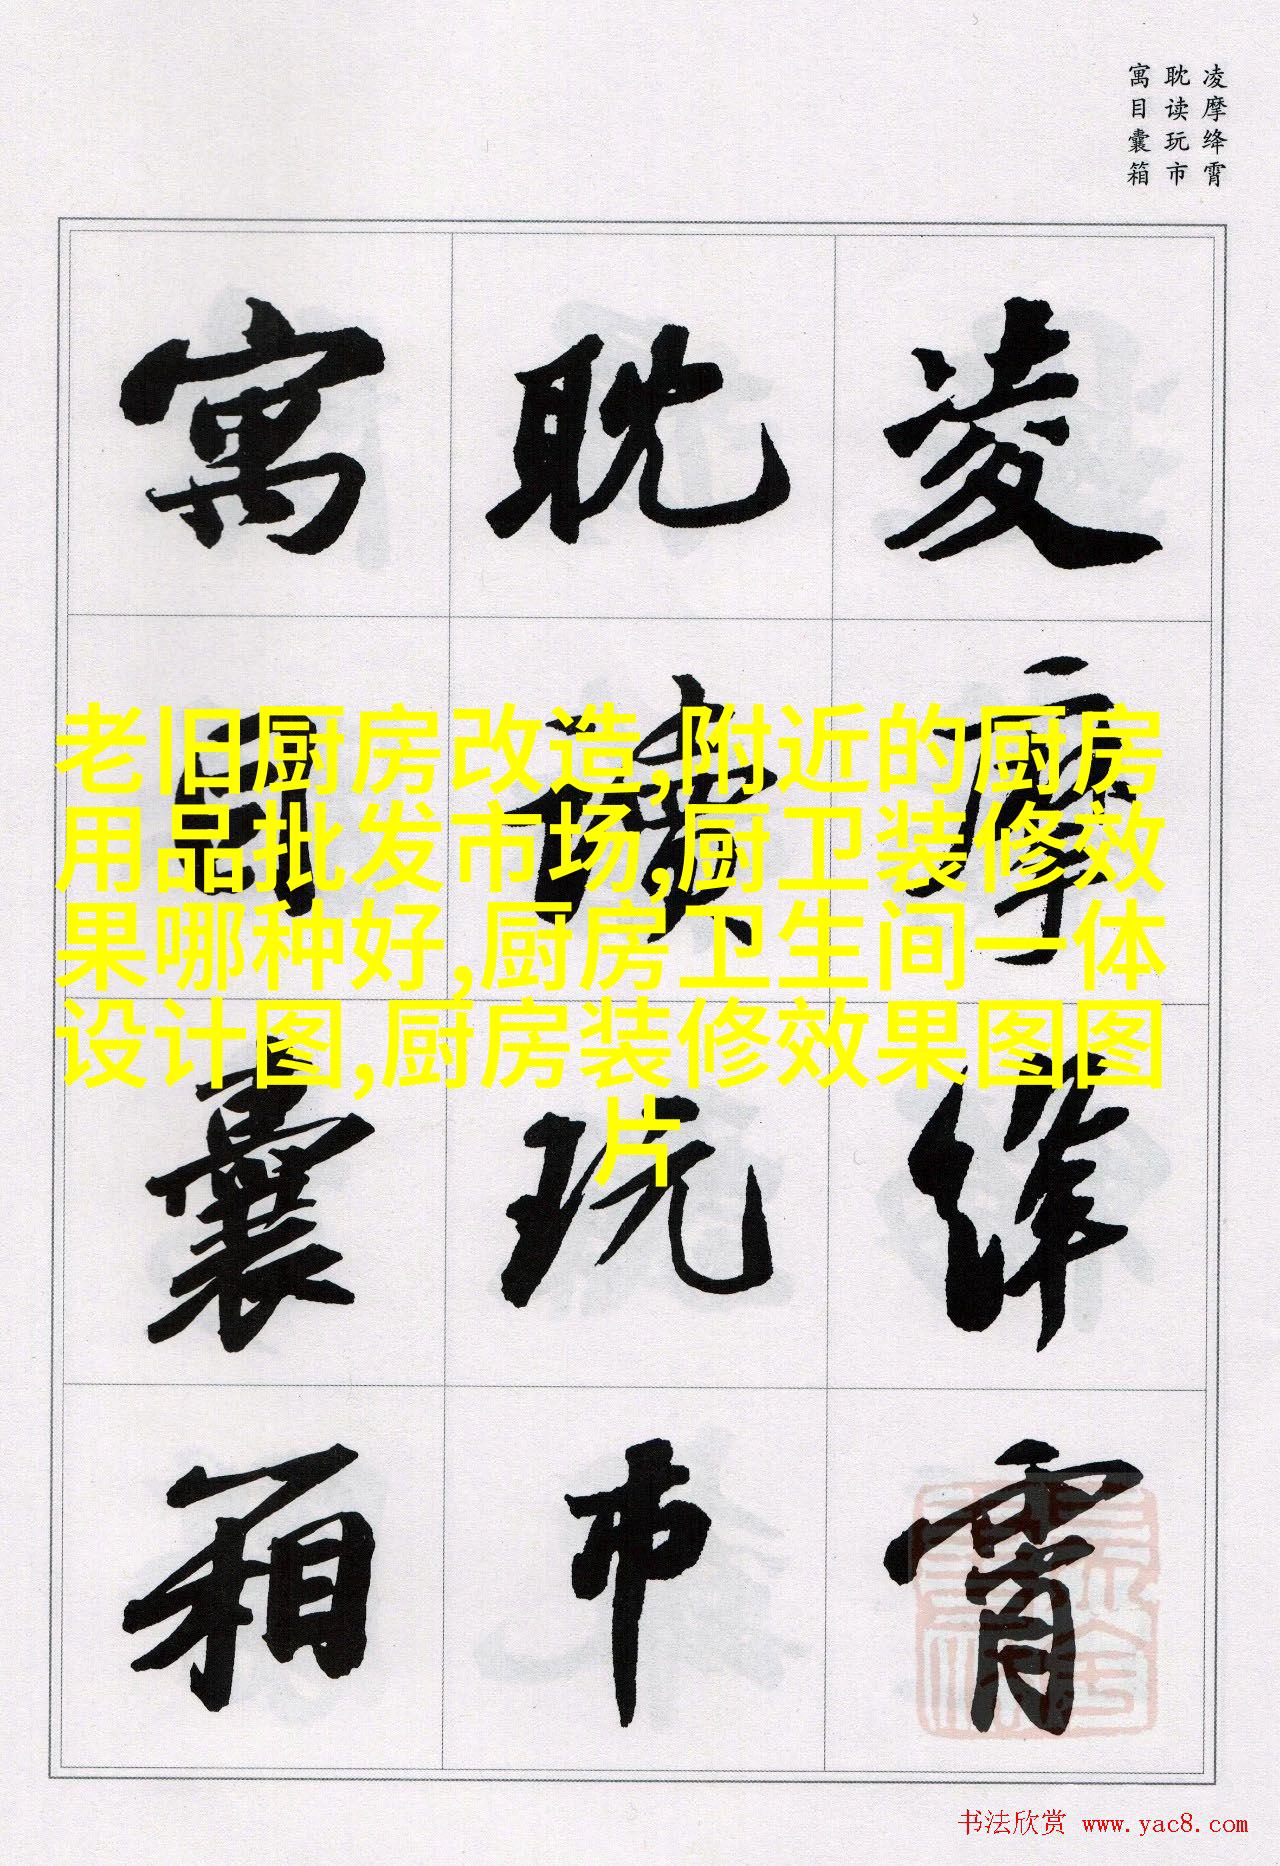 凌摩绛霄
耽读玩市
寓目囊箱
凌摩绛霄
耽讀玩市
寓目囊箱
老旧厨房改造,附近的厨房
用品批发市场,厨卫装修效
果哪种好,厨房卫生间一体
设计图,厨房装修效果图图
片
书法欣赏 www.yac8.com